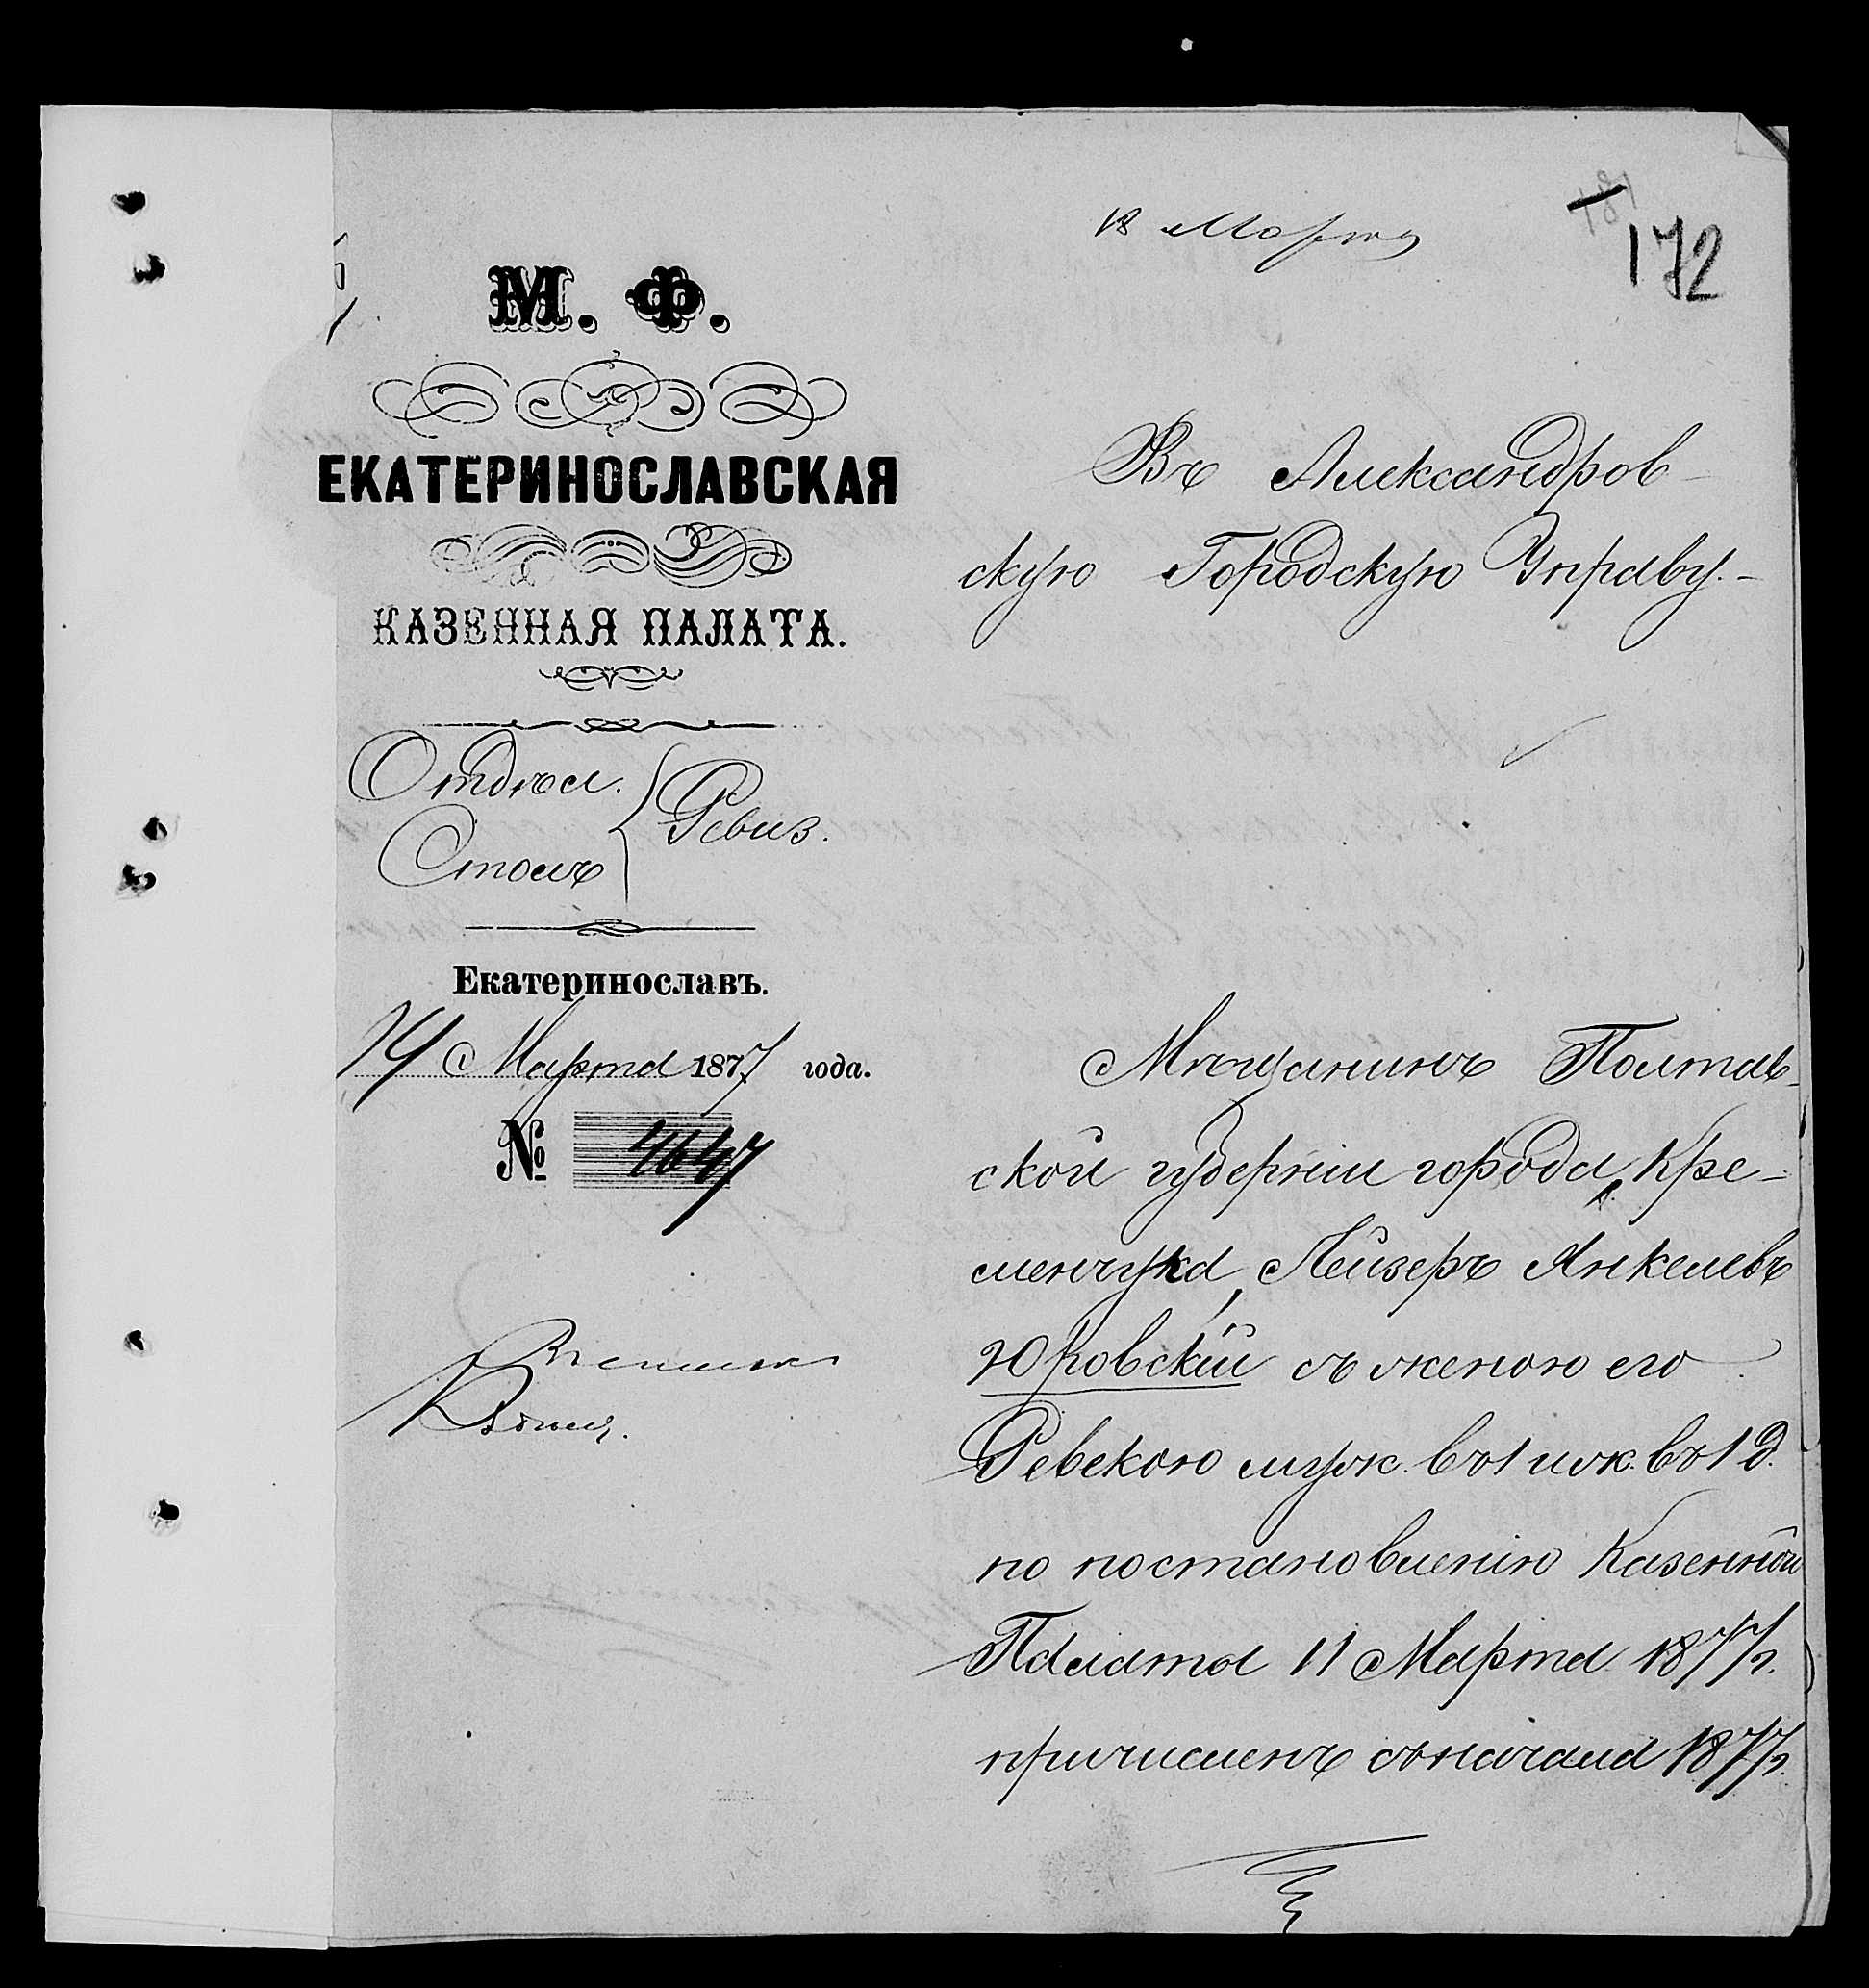 18 Марта
181
172
М. Ф.
ЕКАТЕРИНОСЛАВСКАЯ
КАЗЕННАЯ ПАЛАТА.
Отдѣл.
Столъ
Ревиз.
Екатеринославъ.
14 Марта 1877 года.
№ 4647
Въ Александров-
скую Городскую Управу.-
Мѣщанинъ Полтав-
ской губерніи города Кре-
менчука, Лейзеръ Янкелевъ
Юровскій съ женою его
Ревекою муж. въ 1 и ж. въ 1 д.
по постановленію Казенной
Палаты 11 Марта 1877 г.
причисленъ съ начала 1877 г.